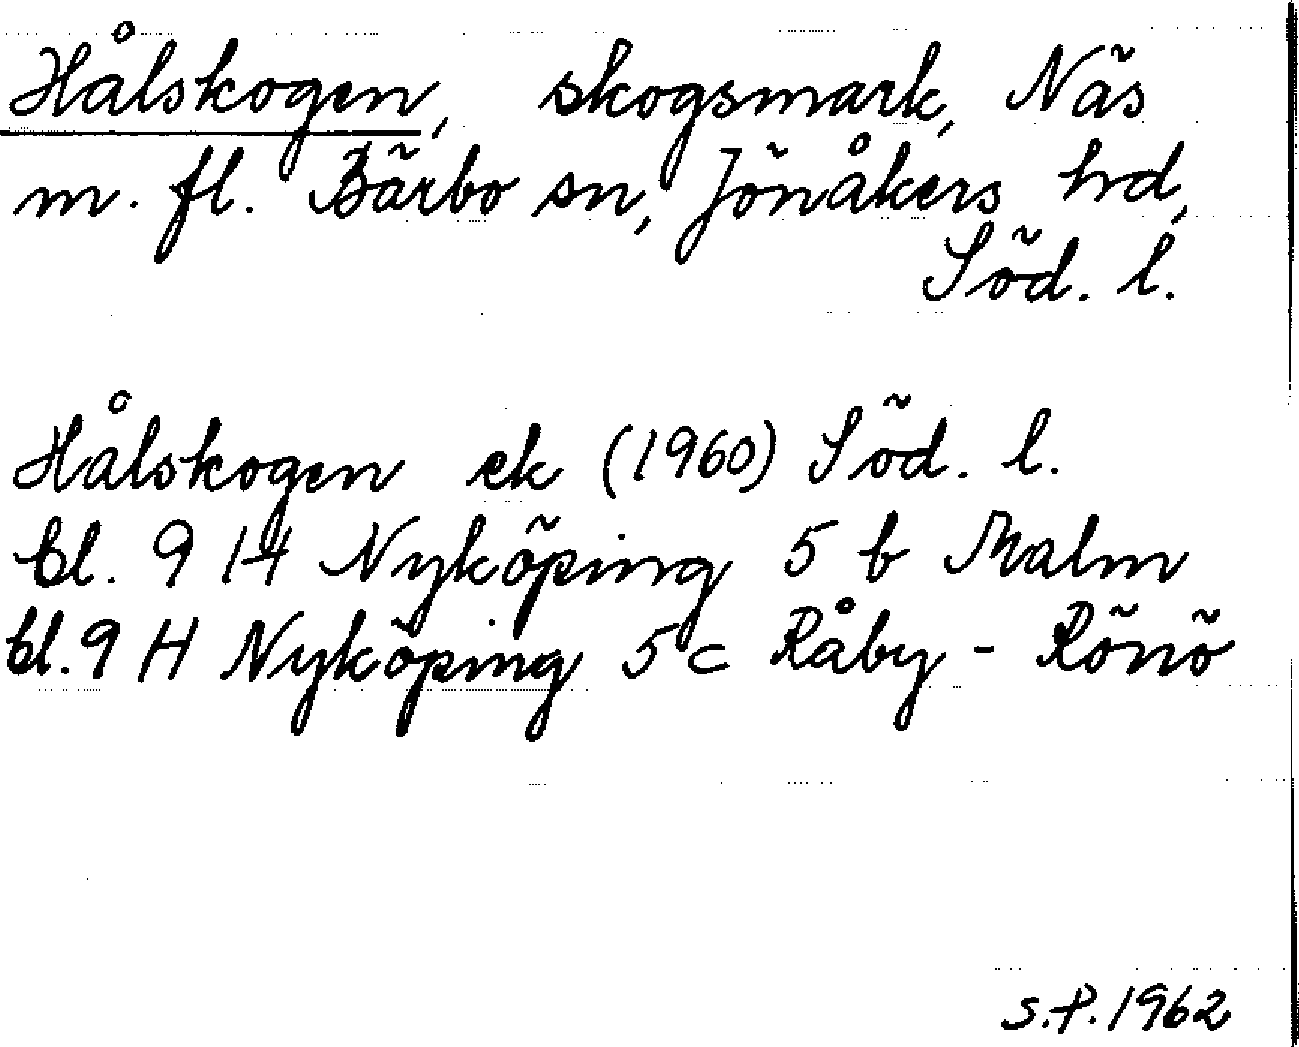 Hålskogen, skogsmark, Näs
m. fl. Bärbo sn, Jönåkers hd,
Söd. l.
Hålskogen ek (1960) Söd. l.
bl. 9 H Nyköping 5 b Malm
bl. 9 H Nyköping 5 c Råby - Rönö
S.P. 1962